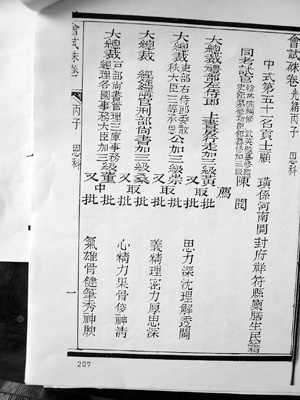 會試硃卷 光緒丙子 恩科
中式第五十二名貢士顧 璜係河南開封府祥符縣廩膳生民籍
同考試官
陳 閱
薦
大總裁禮部左侍郎 上書房行走加三級黃 批
取
又批 思力深沈理解透闢
大總裁 吏部右侍郎委散
秩大臣二等承恩
公加三級崇 批
取
又批 義精理密力厚思深
大總裁 經筵講官刑部尚書加三級桑 批
取
又批 心精力果骨俊神清
大總裁 戶部尚書管理三庫事務
經理各國事務大臣加三級
董 批
中
又批 氣雄骨健筆秀神腴
會試硃卷 丙子 恩科
一
一
207